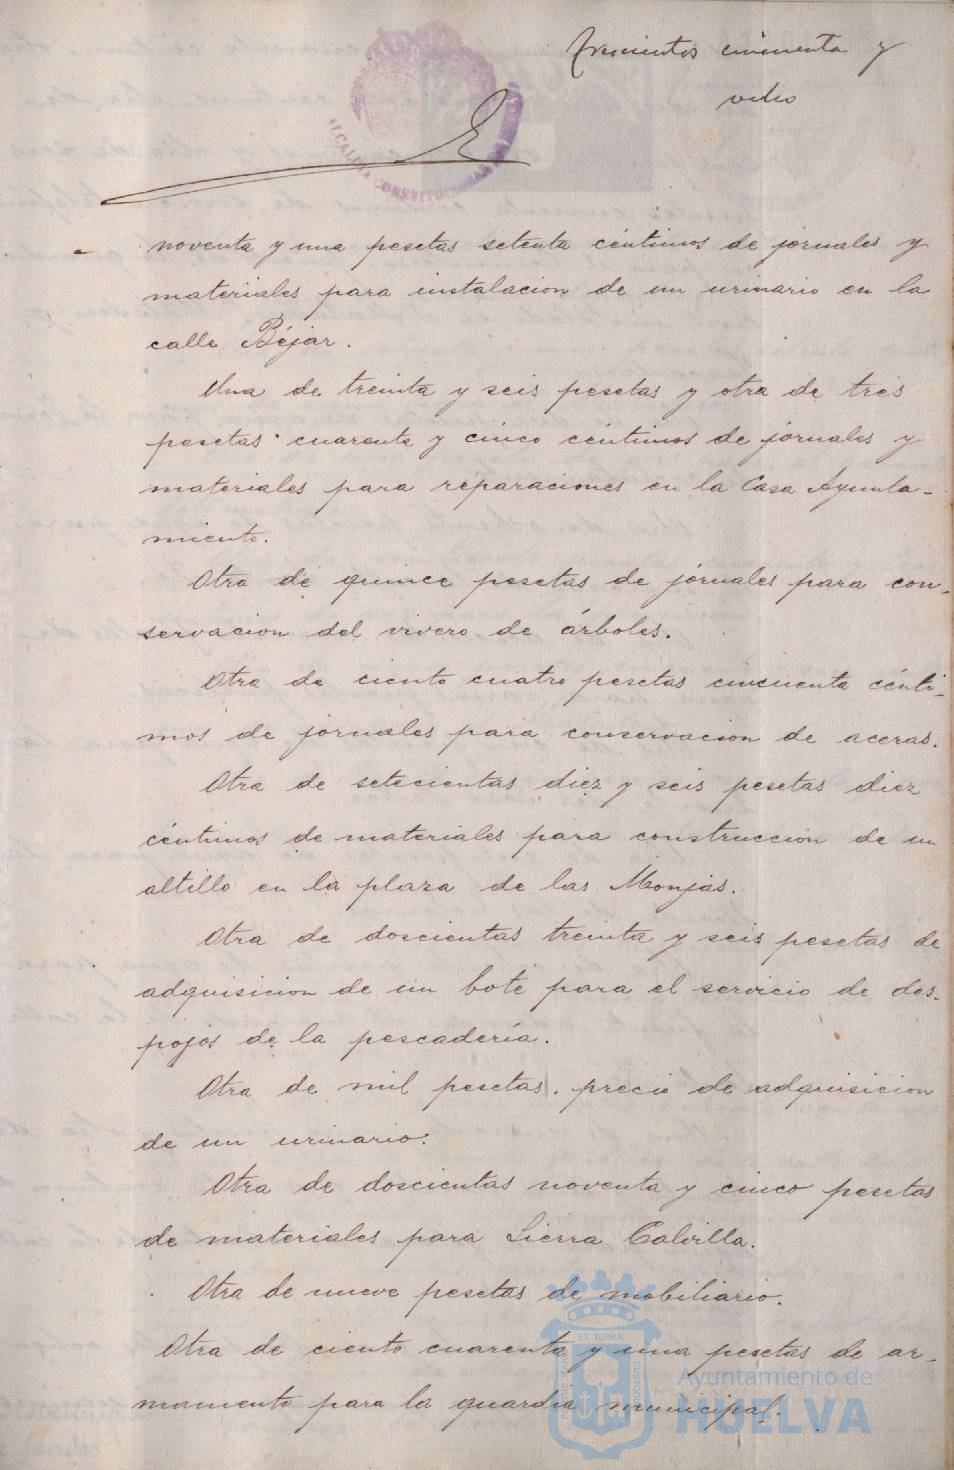 Trescientos cincuenta y
ocho
ALCALDIA CONSTITUCIONAL
noventa y una pesetas setenta céntimos de jornales y
materiales para instalacion de un urinario en la
calle Béjar.
Una de treinta y seis pesetas y otra de tres
pesetas cuarenta y cinco céntimos de jornales y
materiales para reparaciones en la Casa Ayunta-
miento.
Otra de quince pesetas de jornales para con-
servacion del vivero de árboles.
Otra de ciento cuatro pesetas cincuenta cénti-
mos de jornales para conservacion de aceras.
Otra de setecientas diez y seis pesetas diez
céntimos de materiales para construccion de un
altillo en la plaza de las Monjas.
Otra de doscientas treinta y seis pesetas de
adquisicion de un bote para el servicio de des-
pojos de la pescadería.
Otra de mil pesetas. precio de adquisicion
de un urinario.
Otra de doscientas noventa y cinco pesetas
de materiales para Sierra Calvilla.
Otra de nueve pesetas de mobiliario.
Otra de ciento cuarenta y una pesetas de ar-
mamento para la guardia municipal.
ET TERRÆ
PORTUS MARIS
CUSTODIA
Ayuntamiento de
HUELVA